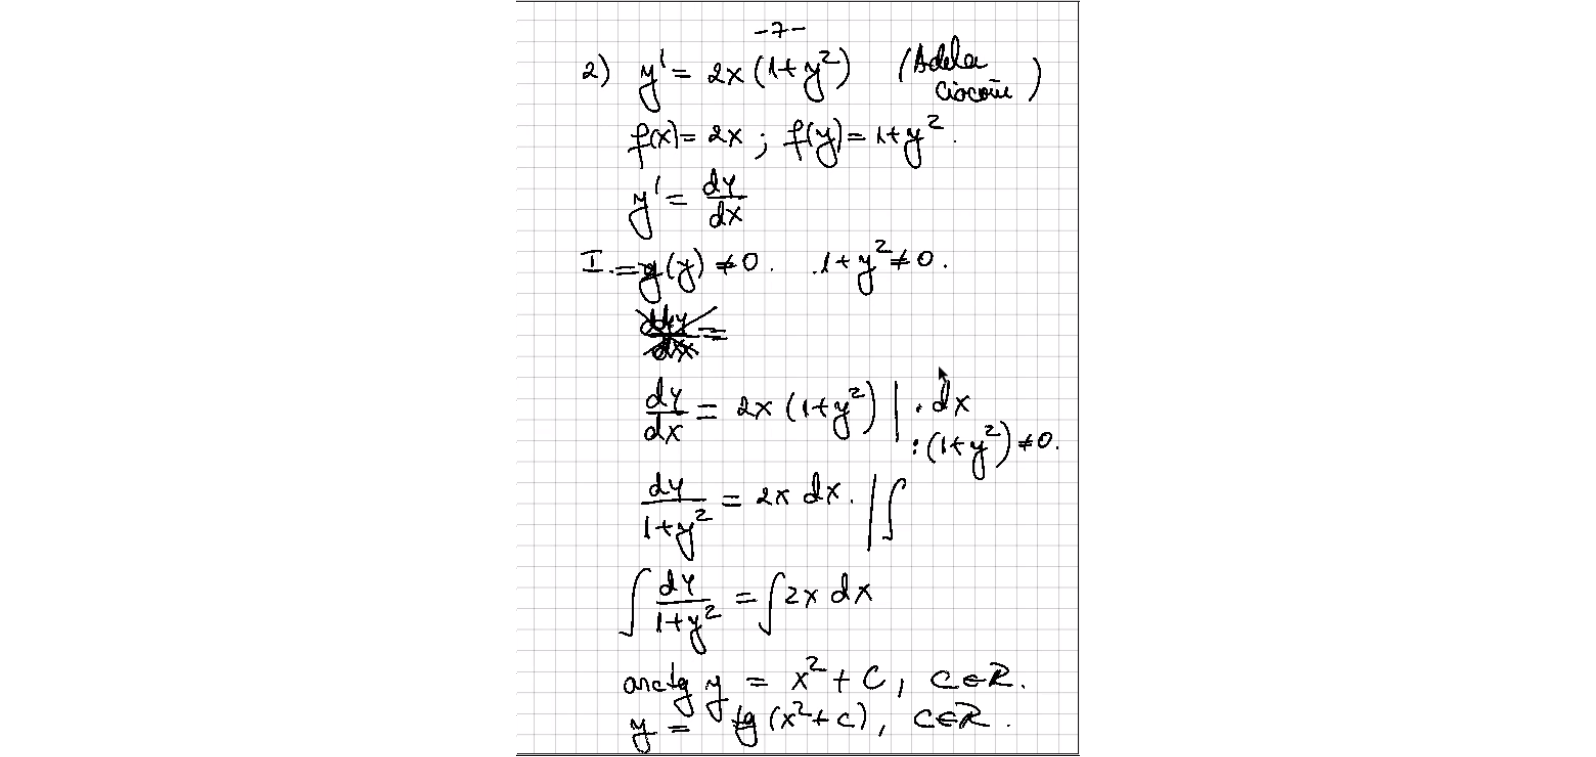 -7-
2) y' = 2x (1+y²) (Adela
f(x) = 2x ; f(y) = 1+y².
y' = dy/dx
I. = g(y) ≠ 0. 1+y² ≠ 0.
dy/dx = 2x (1+y²) | · dx
: (1+y²) ≠ 0.
dy/(1+y²) = 2x dx. | ∫
∫ dy/(1+y²) = ∫ 2x dx
arctg y = x² + C, C∈R.
y = tg (x²+c), C∈R.